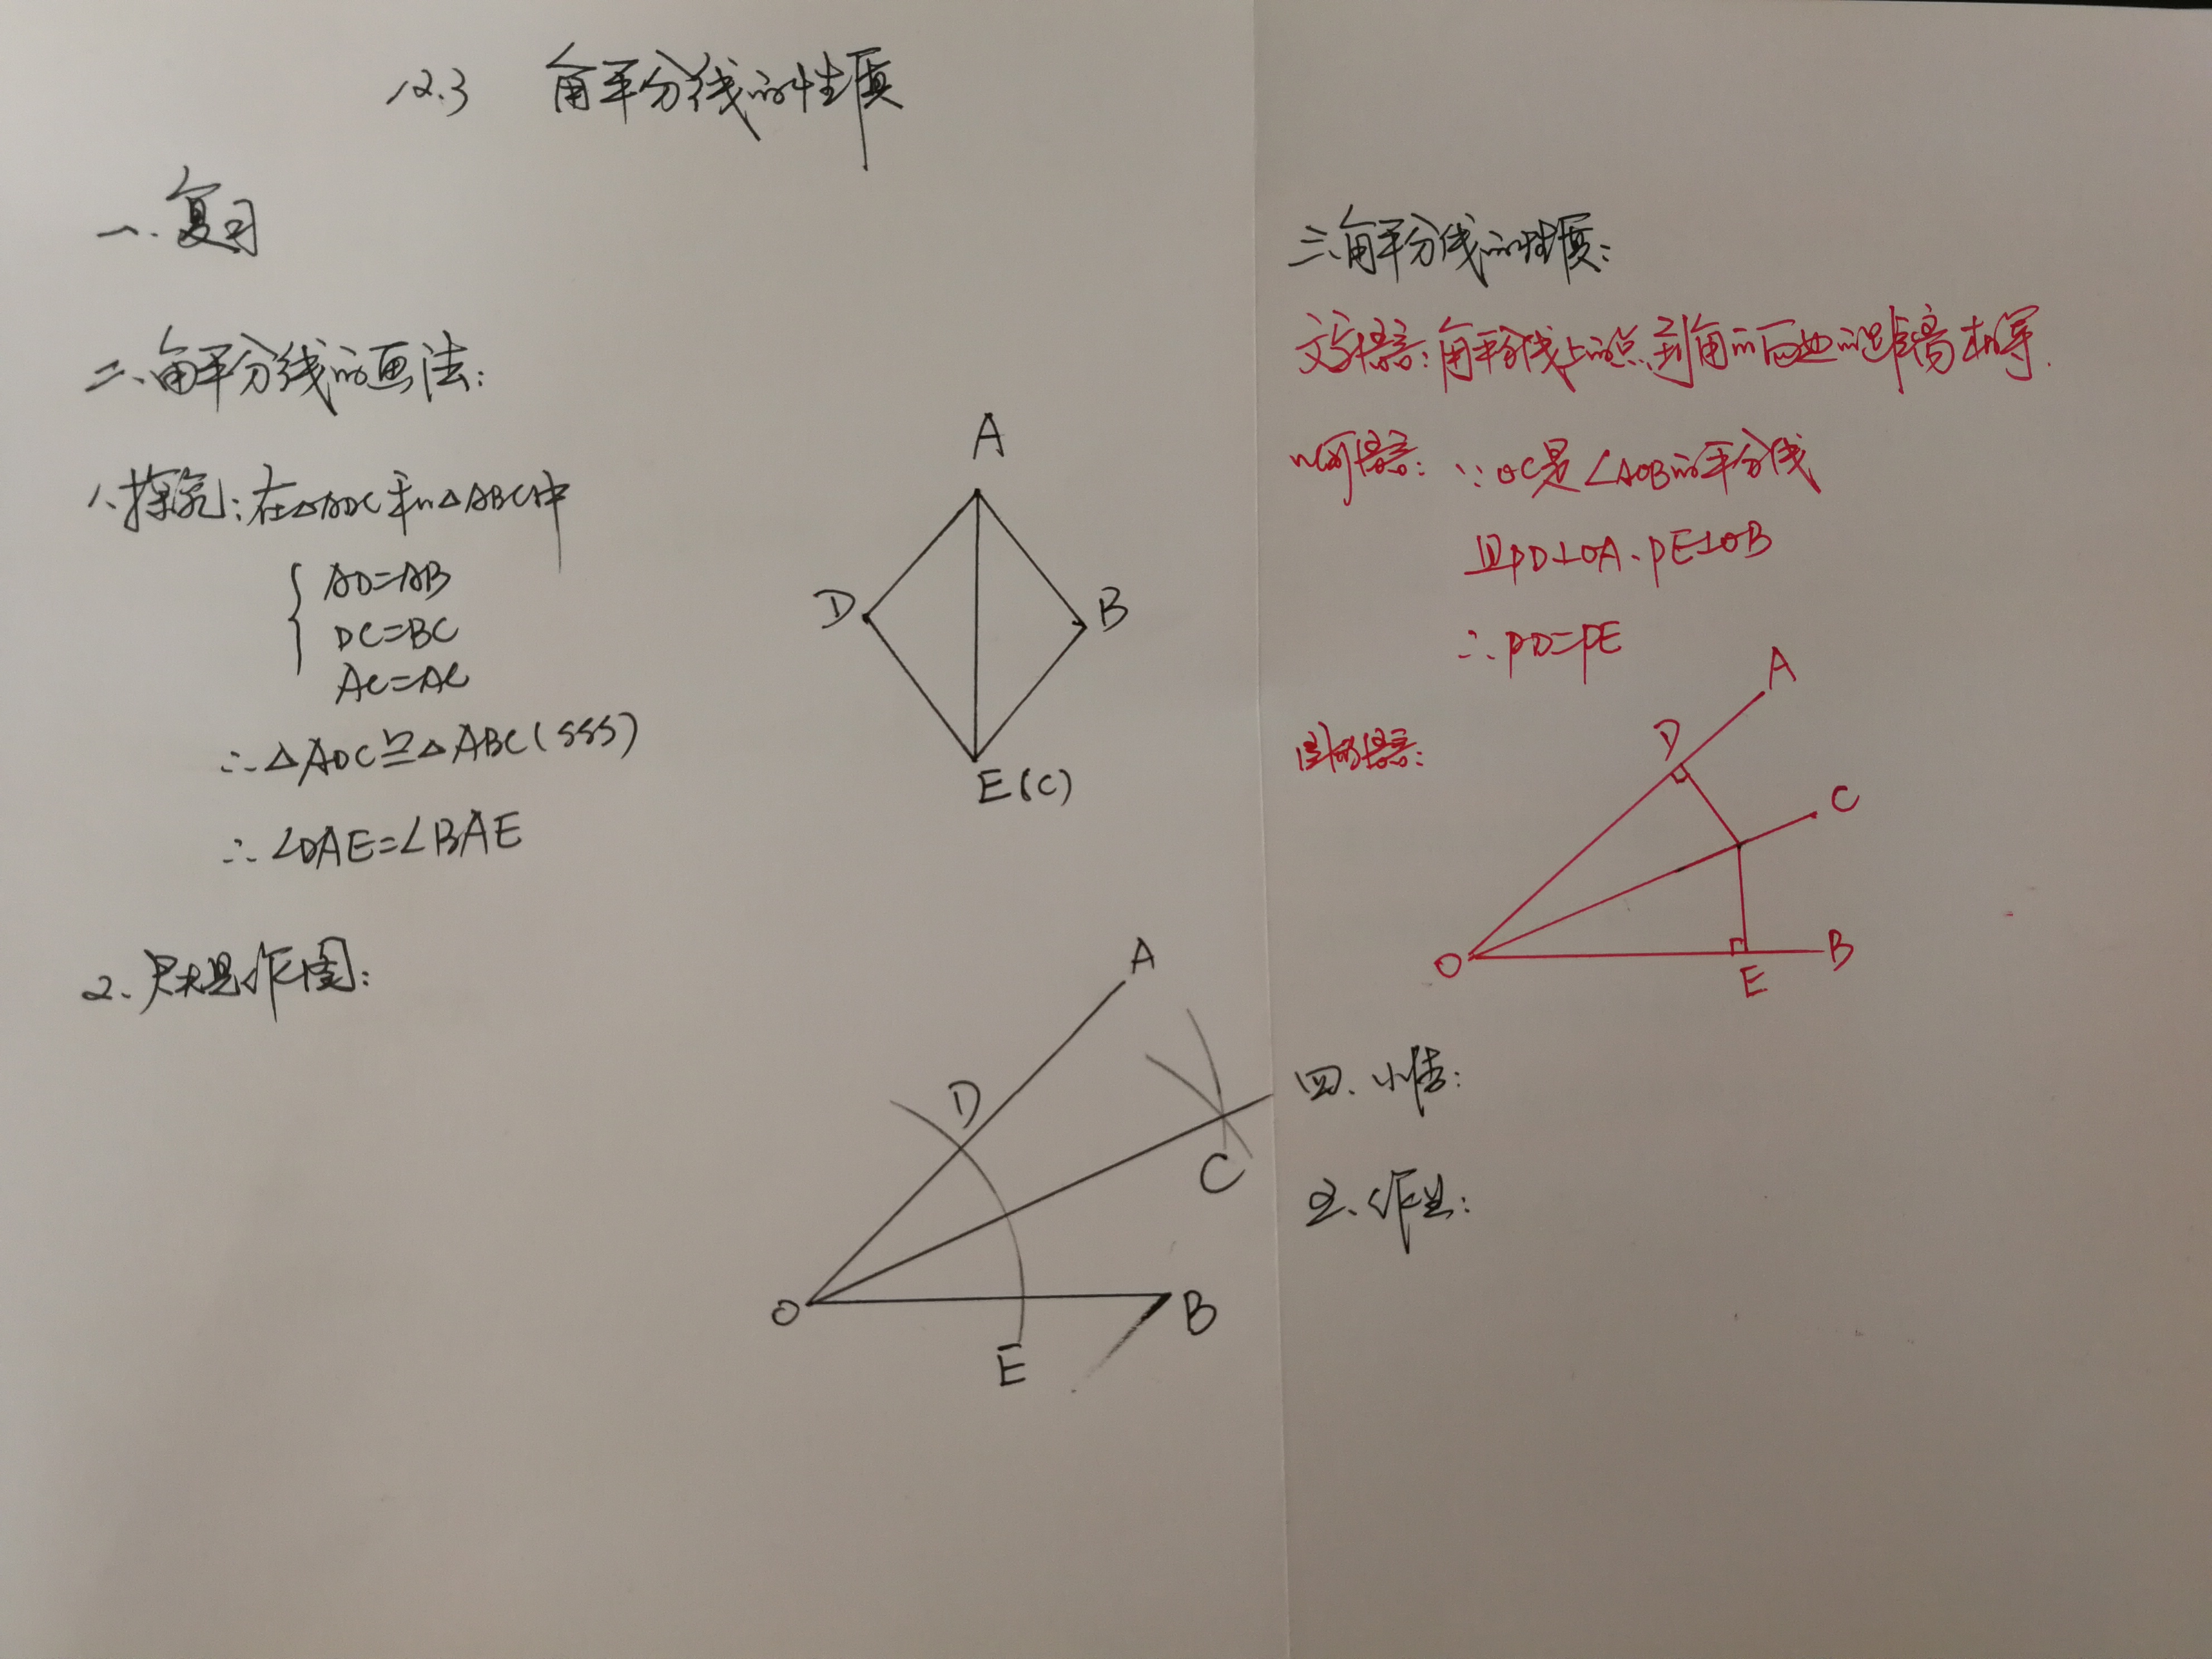 12.3 角平分线的性质
一、复习
二、角平分线的画法：
1、探究：在△ADC和△ABC中
AD=AB
DC=BC
AC=AC
∴△ADC≌△ABC(SSS)
∴∠DAE=∠BAE
A
D
B
E(C)
2、尺规作图：
A
D
C
O
B
E
三、角平分线的性质：
文字语言：角平分线上的点到角的两边的距离相等.
几何语言：∵OC是∠AOB的平分线
且PD⊥OA、PE⊥OB
∴PD=PE
图形语言：
A
D
C
O
B
E
四、小结：
五、作业：